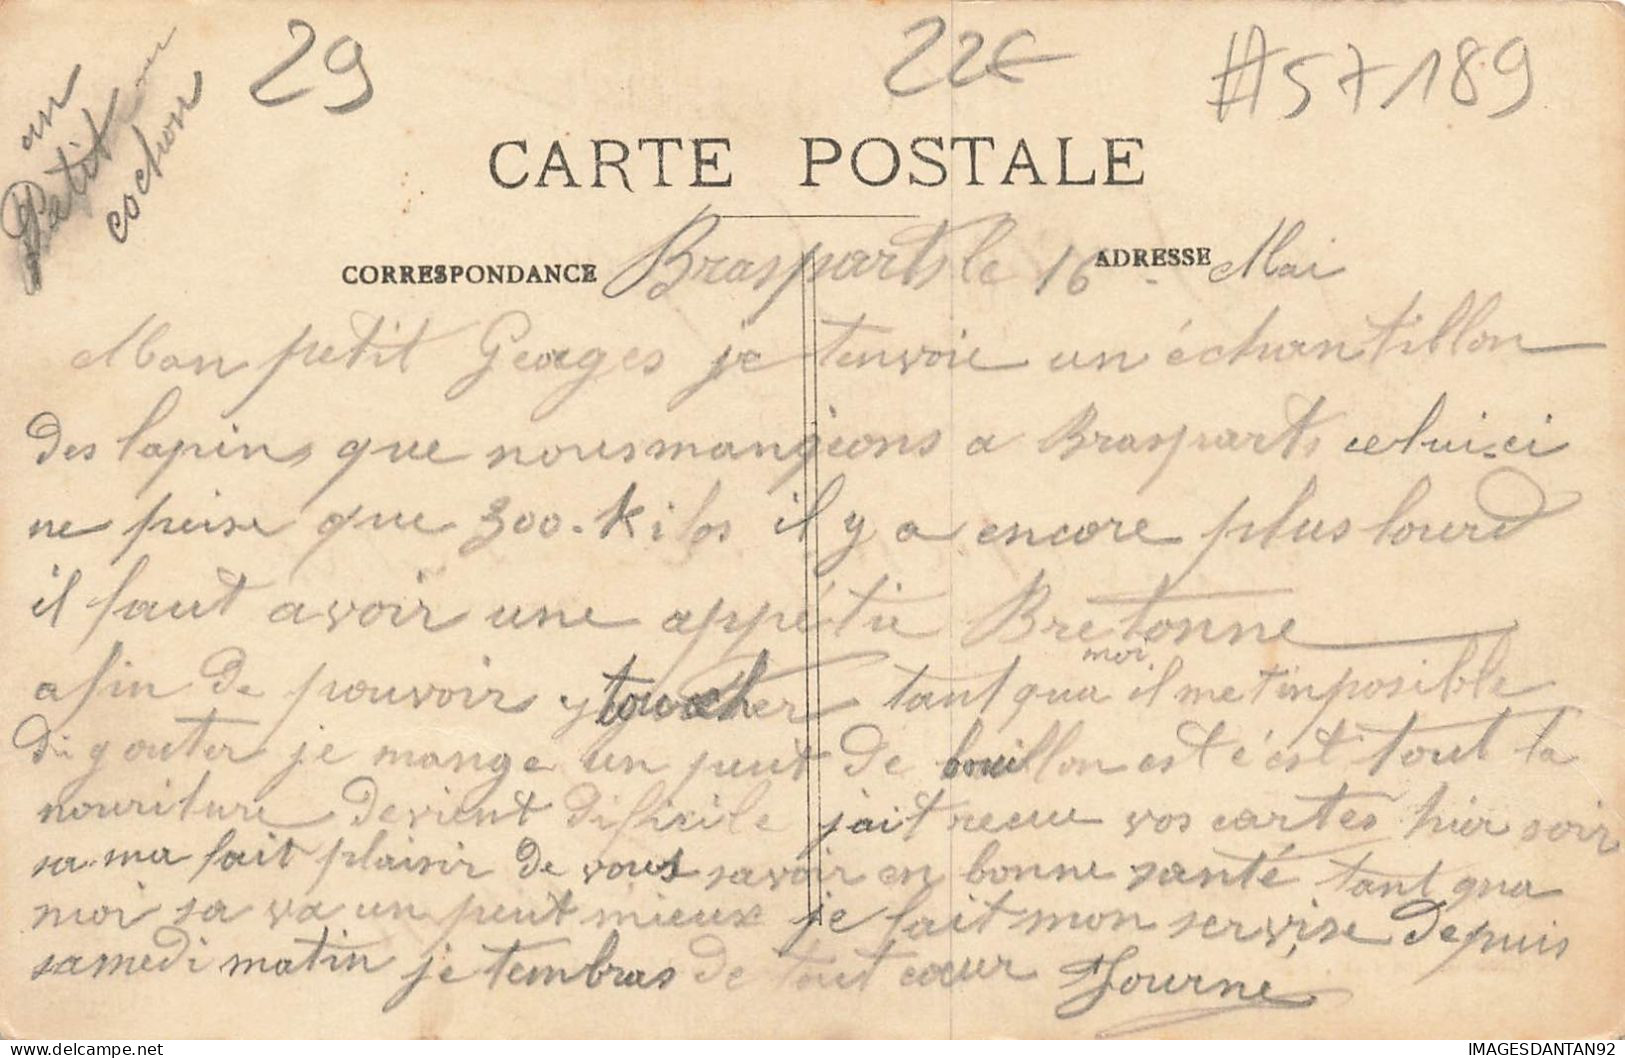 un
Petit
cochon
29
22€
#57189
CARTE POSTALE
CORRESPONDANCE
ADRESSE
Brasparts le 16 Mai
Mon petit Georges je tenvoie un échantillon
des lapins que nous mangeons a Brasparts celui-ci
ne peise que 300. Kilos il y a encore plus lourd
il faut avoir une appétie Bretonne
afin de pouvoir y toucher tant qua moi il met imposible
di gouter je mange un peut de bouillon est c'est tout la
nouriture devient dificile jait recue vos cartes hier soir
sa ma fait plaisir de vous savoir en bonne santé tant qua
moi sa va un peut mieux je fait mon servise depuis
samedi matin je tembras de tout cœur Journé
IMAGESDANTAN92